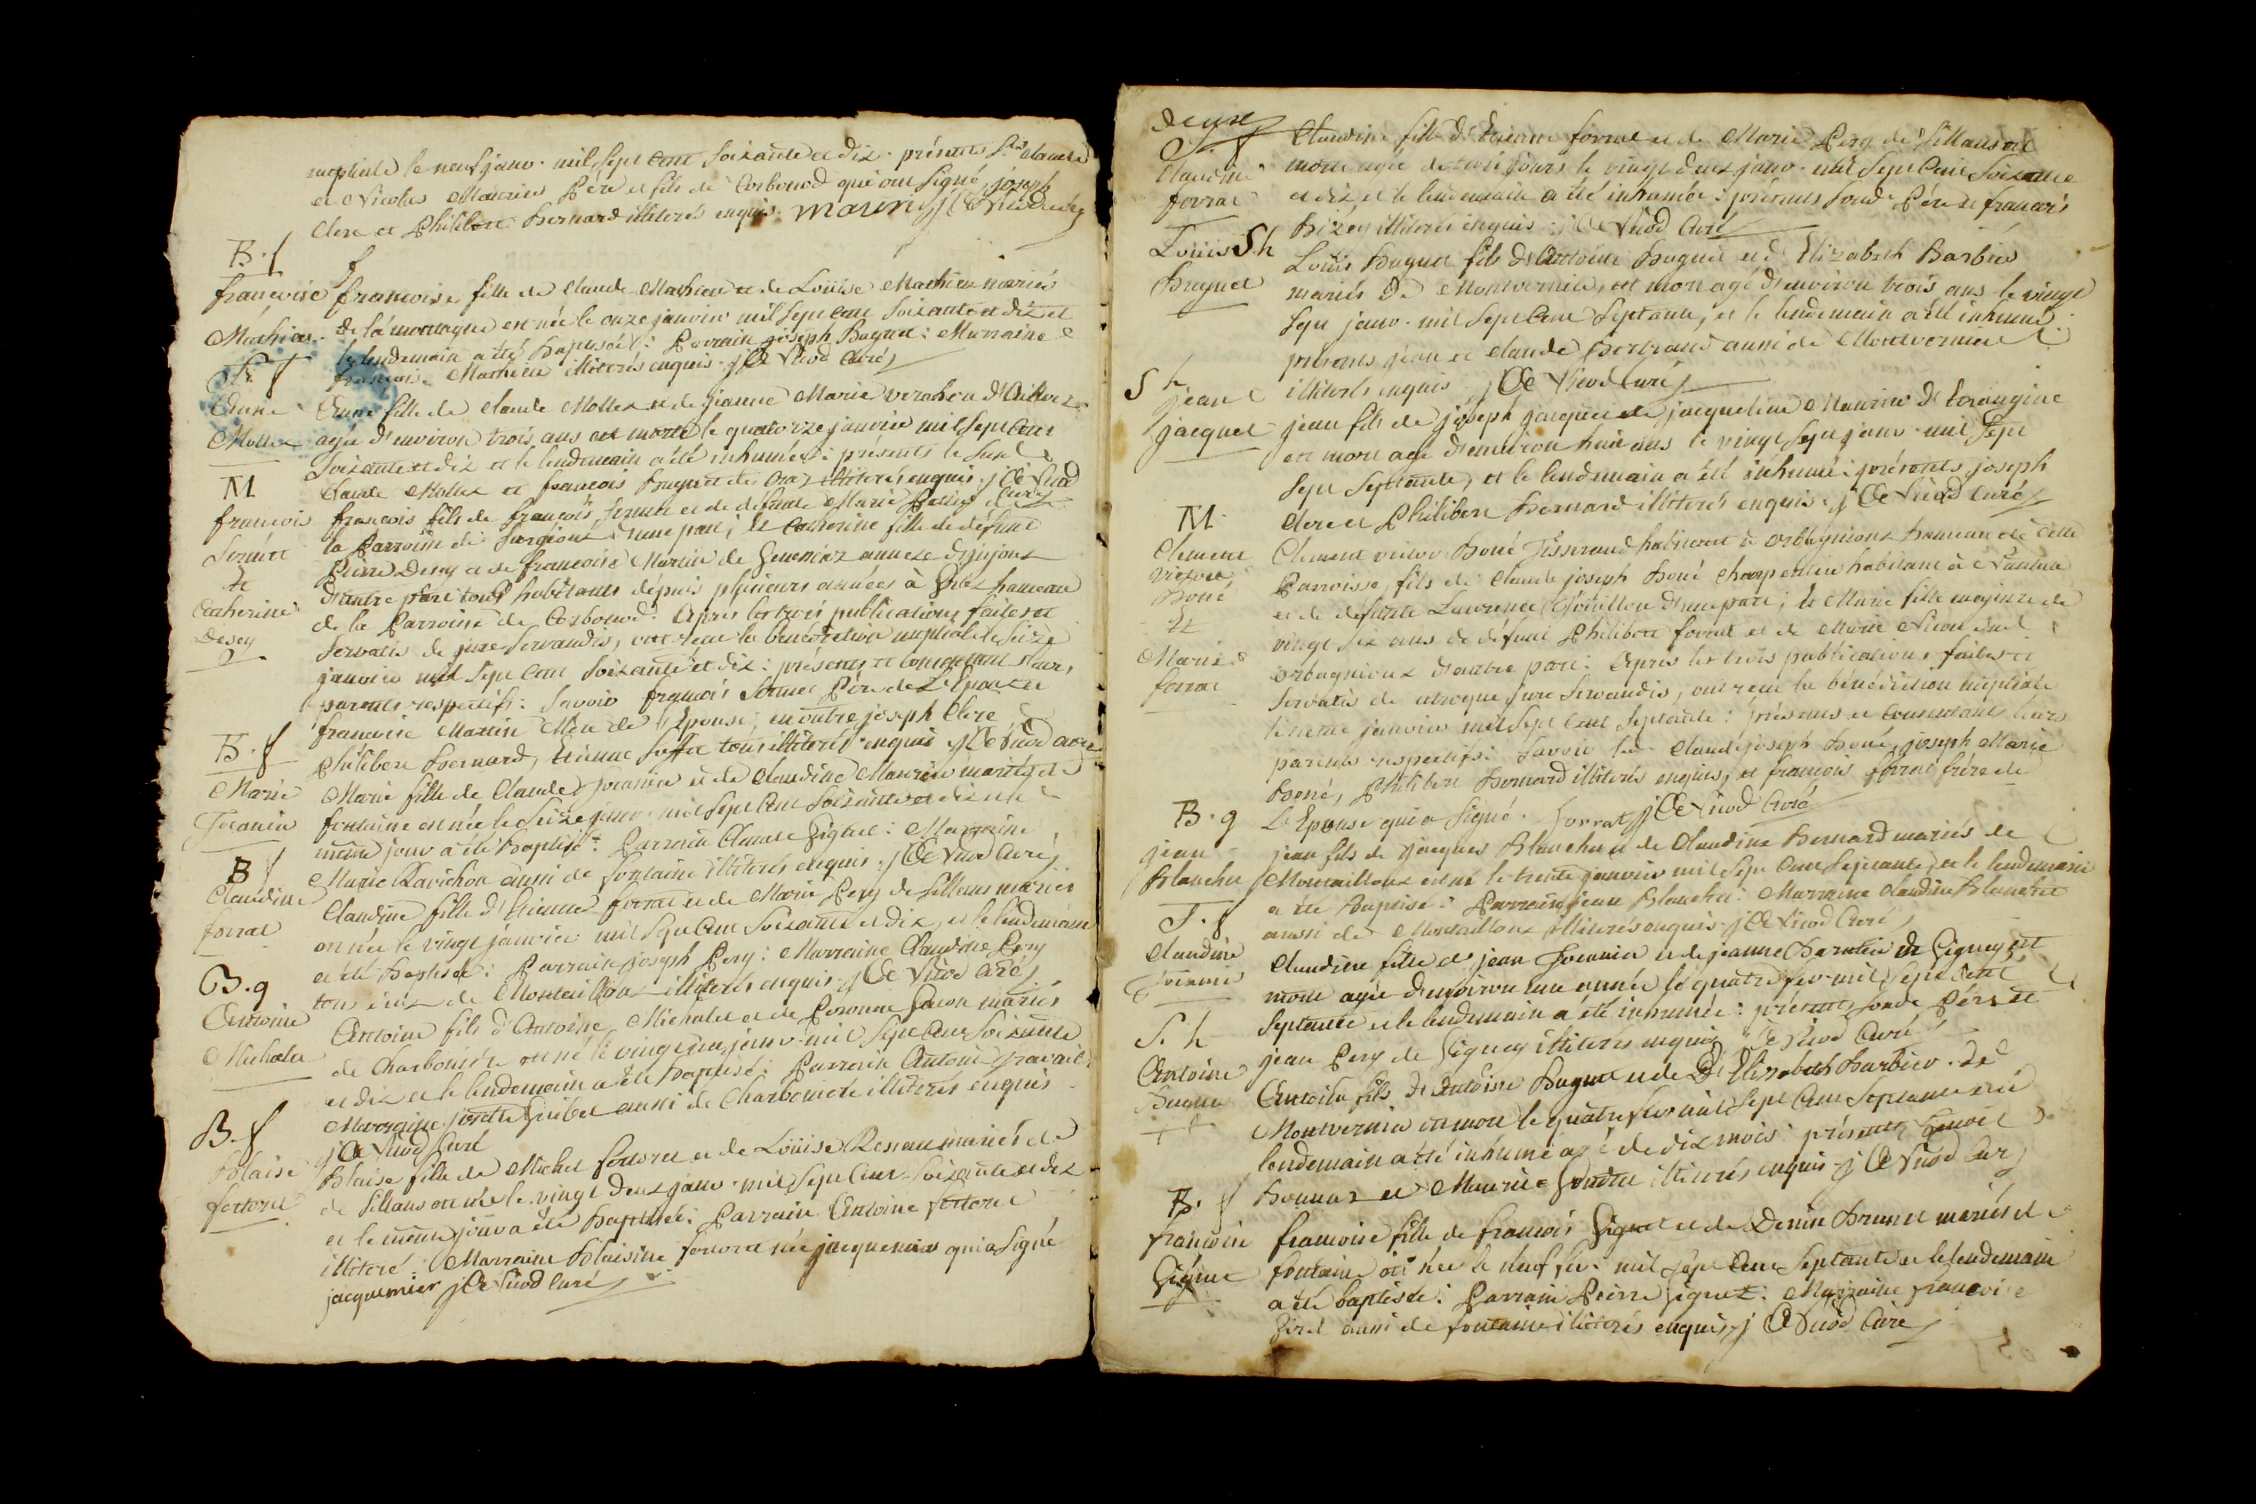 nuptiale le neuf janv. mil sept cent soixante et dix. présents Srs Claude
et Nicolas Maurier Père et fils de Corbonod qui ont signé, joseph
Clerc et Philibert Bernard illiterés enquis.
B. f
françoise françoise fille de Claude Mathieu et de Loüise Mathieu mariés
Mathieu de la montagne est née le onze janvier mil sept cent soixante et dix et
le lendemain a été baptisée: Parrain joseph Buguet: Marraine
françoise Mathieu illiterés enquis. j Curé
S. f
Anne Anne fille de Claude Mollex et de jeanne Marie
Mollex agée d'environ trois ans est morte le quatorze janvier mil sept cent
soixante et dix et le lendemain a été inhumée: présents le susd
Claude Mollex et françois Huguet illiterés enquis. j
M
françois françois fils de françois et de defunte Marie
la Parroisse de d'une part; Et Catherine fille de défunt
Et Pierre Decoy et de françoise Martin de annexe
Catherine d'autre part tous habitants dépuis plusieurs années à hameau
Decoy de la Parroisse de Corbonod: Après les trois publications faites et
servatis de jure servandis, ont reçu la bénédiction nuptiale le seize
janvier mil sept cent soixante et dix: présents et consentant leurs
parents respectifs: Savoir françois Père de L'Epoux et
françoise Martin Mère de l'Epouse, en outre joseph Clerc
Philibert Bernard, Etienne tous illiterés enquis j Curé
B. f
Marie Marie fille de Claude et de Claudine Maurier mariés de
fontaine est née le seize janv. mil sept cent soixante et dix et le
même jour a été baptisée: Parrain Claude Gignet: Marraine
Marie aussi de fontaine illiterés enquis. j Curé
B f
Claudine Claudine fille d'Etienne forrat et de Marie Pery de Sillans mariés
forrat est née le vingt janvier mil sept cent soixante et dix, et le lendemain
a été baptisée: Parrain joseph Pery: Marraine Claudine Pery
tous deux de illiterés enquis. j Curé
B. g
Antoine Antoine fils d'Antoine Michalet et de mariés
Michalet de Charboniere est né le vingt janv. mil sept cent soixante
et dix et le lendemain a été baptisé: Parrain Antoine
Marraine aussi de Charboniere illiterés enquis
j Curé
B. f
Blaise Blaise fille de Michel fortoret et de Loüise mariés de
de Sillans est née le vingt deux janv. mil sept cent soixante et dix
et le même jour a été baptisée: Parrain Antoine
illiteré: Marraine Blaisine née jacquemier qui a signé
jacquemier j Curé
deux
S. f
Claudine fille d'Etienne forrat et de Marie Pery de Sillans est
Claudine morte agée de trois jours le vingt deux janv. mil sept cent soixante
forrat et dix et le lendemain a été inhumée: présents Père et françois
illiterés enquis. j Curé
Louis S h
Huguet Loüis Huguet fils d'Antoine Huguet et d'Elizabeth Barbier
mariés de Montvernier, est mort agé d'environ trois ans le vingt
sept janv. mil sept cent septante, et le lendemain a été inhumé:
présents jean et Claude Bertrand aussi de Montvernier
illiterés enquis j Curé
S h
jean jean fils de joseph jacquet et de jacqueline Maurier
jacquet est mort agé d'environ huit ans le vingt sept janv. mil sept
sept septante, et le lendemain a été inhumé: présents, joseph
Clerc et Philibert Bernard illiterés enquis. j Curé
M
Clement Clement victor Boné Tisserand habitant à Orbagnioux hameau de cette
victor Parroisse, fils de Claude joseph Boné Charpentier habitant à
Boné et de defunte Laurence d'une part; Et Marie fille majeure de
Et vingt six ans de défunt Philibert forrat et de Marie
Marie Orbagnioux d'autre part: Après les trois publications faites et
forrat servatis de utroque jure servandis, ont reçu la bénédiction nuptiale
le trente janvier mil sept cent septante: présents et consentant leurs
parents respectifs: savoir led. Claude joseph Boné, joseph Marie
Boné, Philibert Bernard illiterés enquis, et françois forrat frère de
L'Epouse qui a signé. forrat j Curé
B. g
jean jean fils de jacques Blanchet et de Claudine Bernard mariés de
Blanchet est né le trente janvier mil sept cent septante, et le lendemain
a été baptisé: Parrain jean Blanchet: Marraine Claudine Blanchet
aussi de illiterés enquis. j Curé
S. f
Claudine Claudine fille de jean et de jeanne de Gignez est
morte agée d'environ une année le quatre fev. mil sept cent
septante et le lendemain a été inhumée: présents Père et
jean Pery de Gignez illiterés enquis j Curé
S. h
Antoine Antoine fils d'Antoine Huguet et de Elizabeth Barbier de
Huguet Montvernier est mort le quatre fev. mil sept cent septante et le
lendemain a été inhumé agé de dix mois: présents
et Maurice illiterés enquis. j Curé
B. f
françoise françoise fille de françois Gignet et de Denise Brunet mariés de
Gignet fontaine est née le neuf fev. mil sept cent septante et le lendemain
a été baptisée: Parrain Pierre Gignet: Marraine françoise
aussi de fontaine illiterés enquis. j Curé